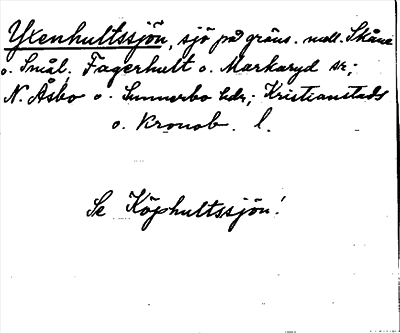 Yxenhultssjön, sjö på gräns. mell. Skåne
o. Smål. Fagerhult o. Markaryd sr;
N. Åsbo o. Sunnerbo hdr; Kristianstads
o. Kronob. l.
Se Köphultssjön!